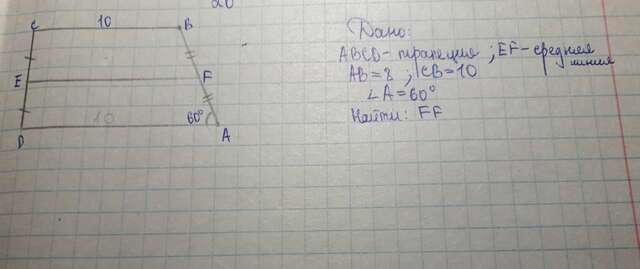 20
C 10 B
E F
10 60°
D A
Дано:
ABCD - трапеция ; EF - средняя
линия
AB = 8 ; CB = 10
∠A = 60°
Найти: FF